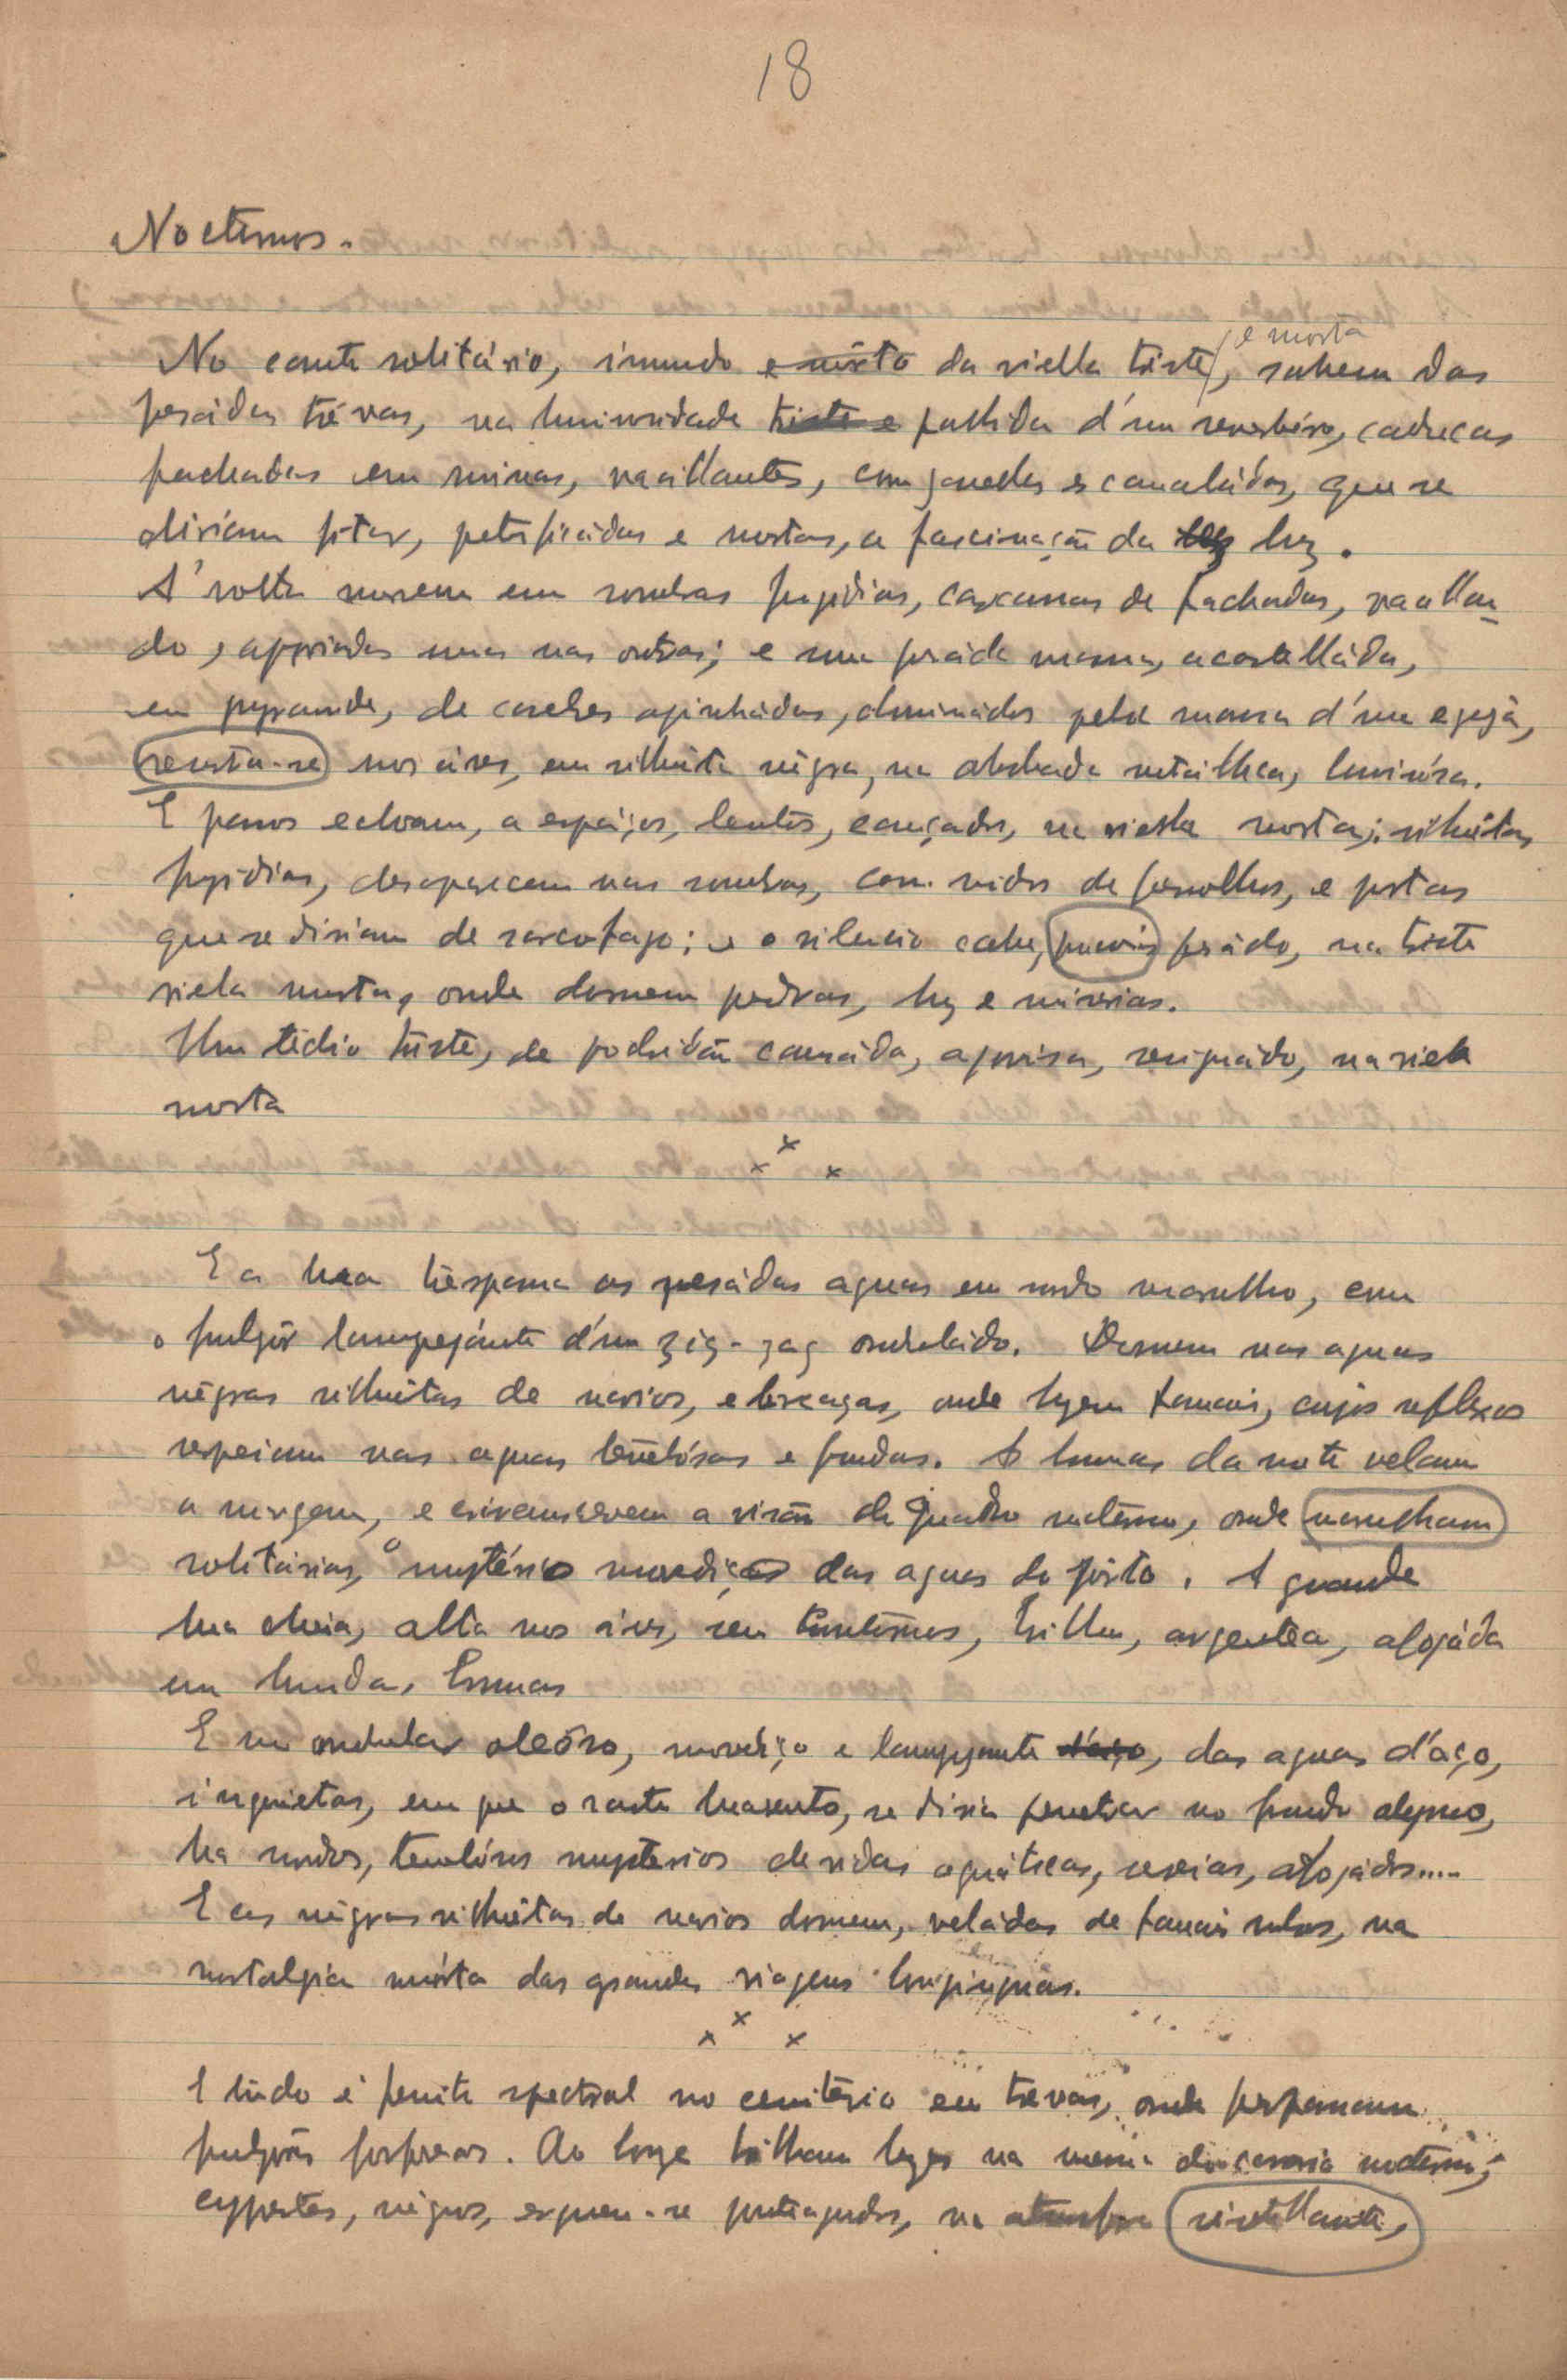 18
Nocturnos.
e morta
No canto solitário, immundo e morto da viella triste, sahem das
pesádas trévas, na luminosidade triste e pallida d'um reverbéro, caducas
fachadas em ruinas, vacillantes, com janellas escancaládas, que se
diriam fitar, petrificádas e mortas, a fascinação da luz.
A' volta morrem em sombras fugidias, carcassas de fachadas, vacillan-
do, appoiadas umas nas outras; e uma pesáda massa, acastelláda,
em pyramide, de casebres apinhádos, dominádos pela massa d'uma egreja,
recorta-se nos áres, em silhuéta négra, na abobada metallica, luminósa.
E passos echoam, a espáços, lentos, cançados, na viella morta; silhuétas
fugidias, desaparecem nas sombras, com ruidos de ferrolhos, e portas
que se diriam de sarcofago; e o silencio cahe, pesádo, na triste
viela morta, onde dormem pedras, luz e miserias.
Um tédio triste, de podridão cansáda, agonisa, resignádo, na viela
morta
x x x
E a lua trespassa as pesádas aguas em mudo marulho, com
o fulgôr lampejánte d'um zig-zag onduládo. Dormem nas aguas
négras silhuêtas de navios, e barcaças, onde luzem fanais, cujos reflexos
serpeiam nas aguas tenebrósas e fundas. As brumas da noite velam
a margem, e circumscrevem a visão do quadro nocturno, onde marulham
solitárias, o mystério movediço das aguas do pôrto. A grande
lua cheia, alta nos áres, sem contornos, brilha, argentea, afogáda
em humidas brumas
E no ondular oleôso, movediço e lampejante d'aço, das aguas d'aço,
inquietas, em que o rasto luarento, se diria penetrar no fundo abysmo,
ha mudos, tenebrósos mysterios de vidas aquáticas, sereias, afogádos....
E as négras silhuêtas de navios dormem, veládas de fanais rubros, na
nostalgia mórta das grandes viagens longinquas.
x x x
E tudo é spectral no cemitério em trevas, onde perpassam
fulgôres fosforeos. Ao longe brilham luzes na mesma nocturna;
cyprestes, négros, erguem-se ponteagudos, na atmosfera scintillante,